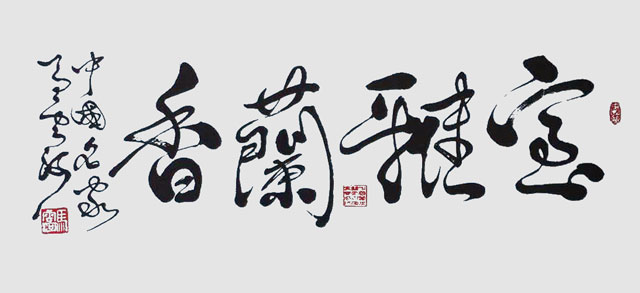 室雅蘭香
中國名家